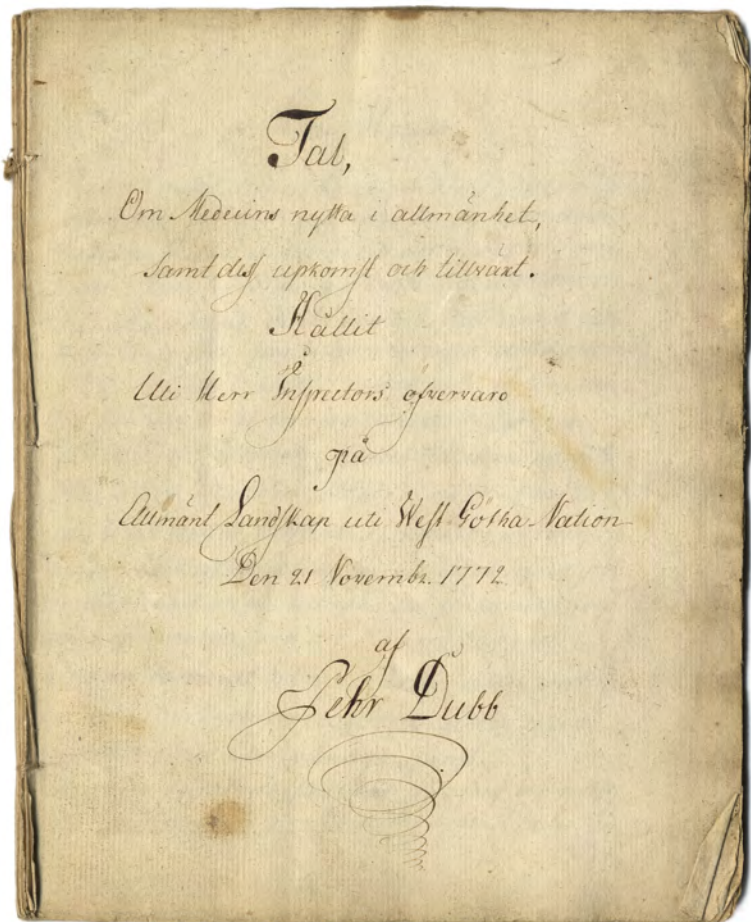 Tal,
Om Medecins nytta i allmänhet,
samt dess upkomst och tillväxt.
Hållit
Uti Herr Inspectors öfvervaro
på
Allmänt Landskap uti West Götha Nation
Den 21 Novembr. 1772
af
Pehr Dubb